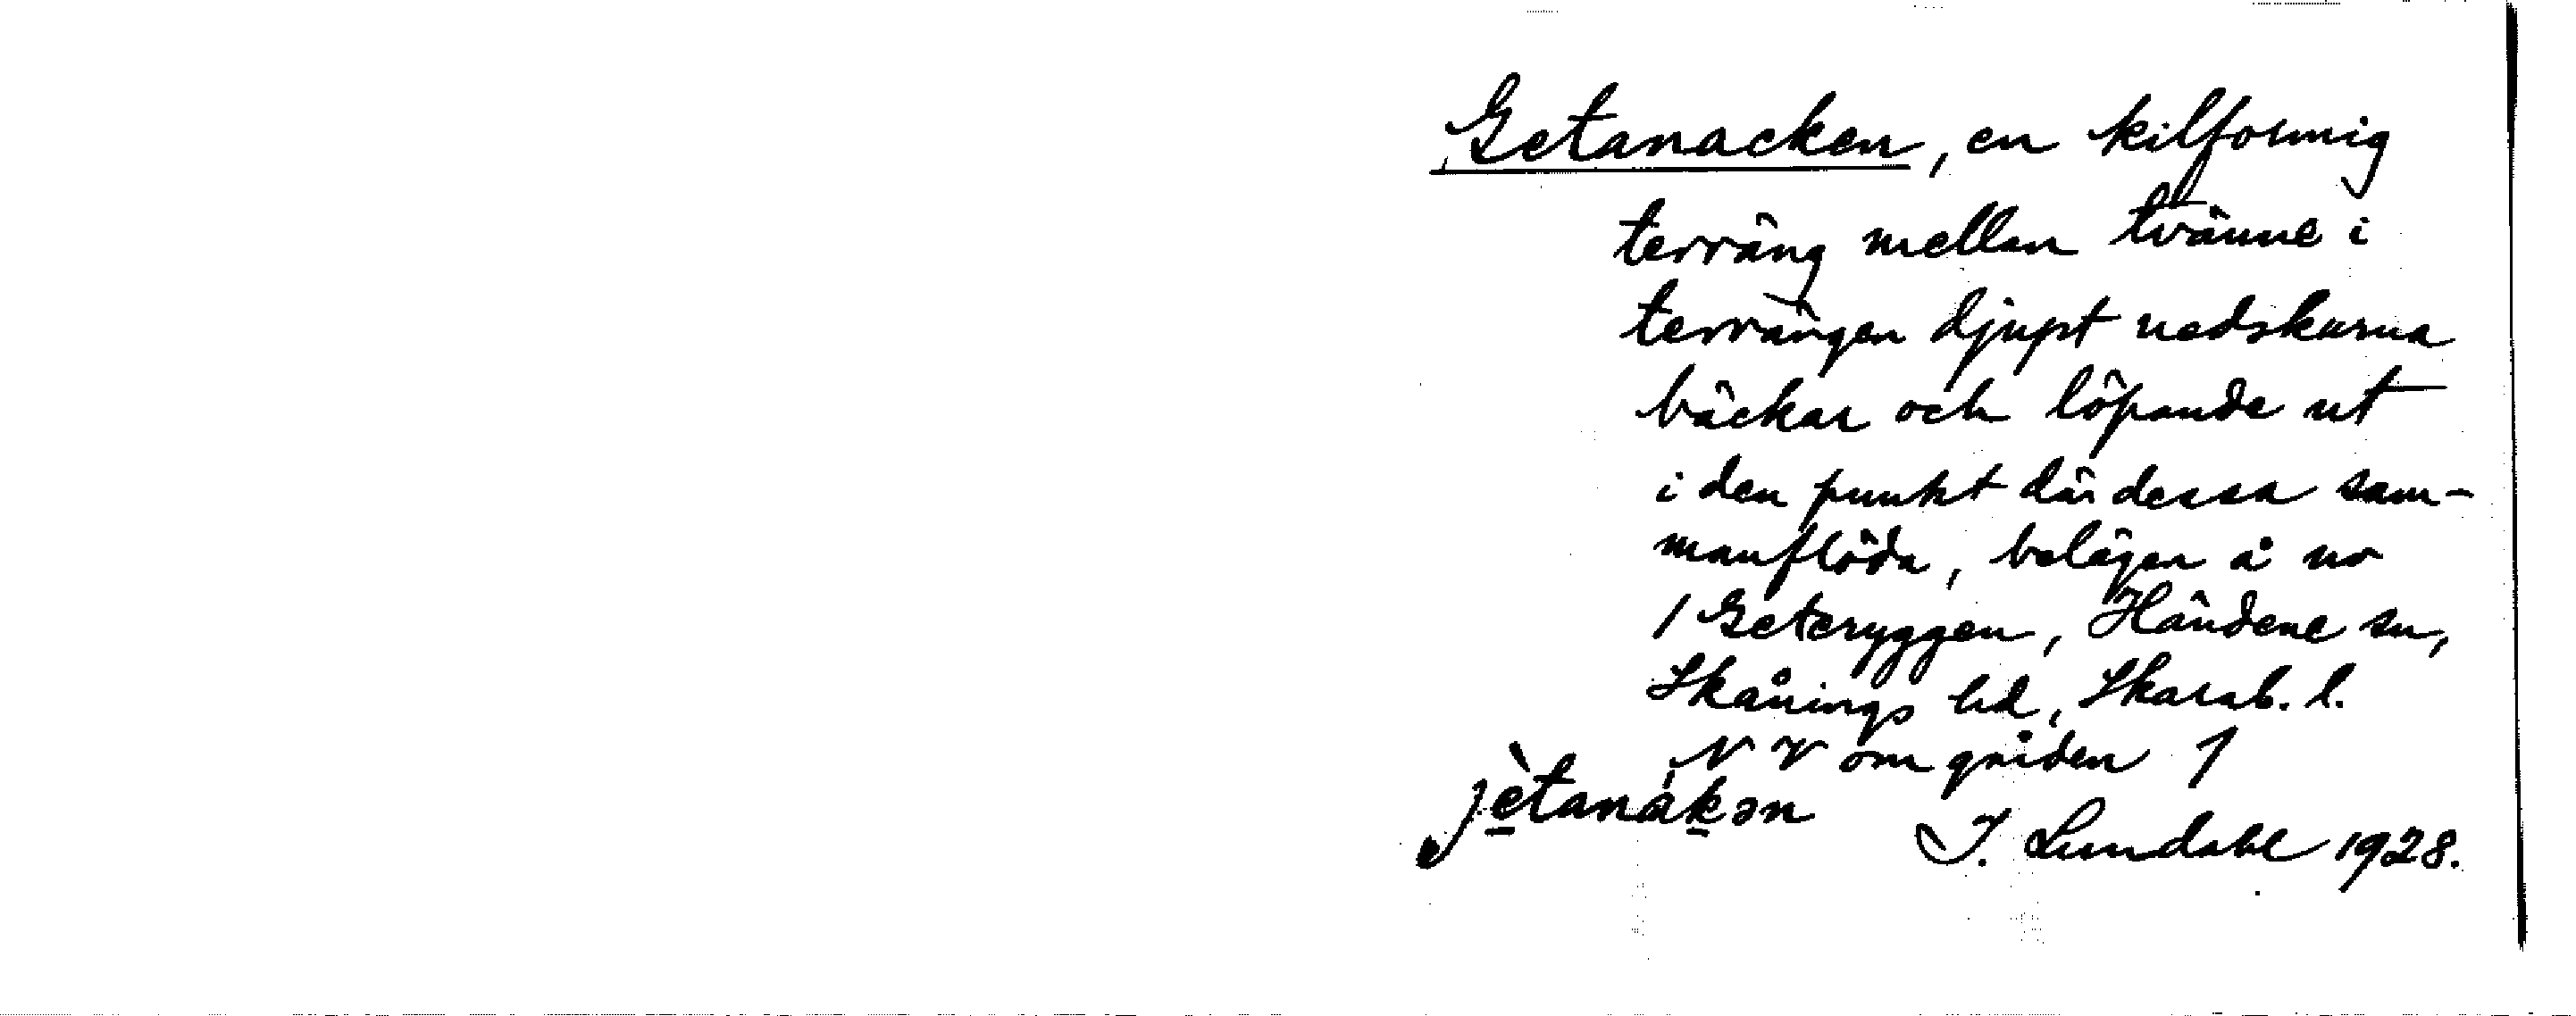 Getanacken, en kilformig
terräng mellan tvänne i
terrängen djupt nedskurna
bäckar och löpande ut
i den punkt där dessa sam-
manflöda, belägen å nr
1 Geteryggen, Händene sn,
Skånings hd, Skarab. l.
NV om gården 1
jètanákən
I. Lundahl 1928.